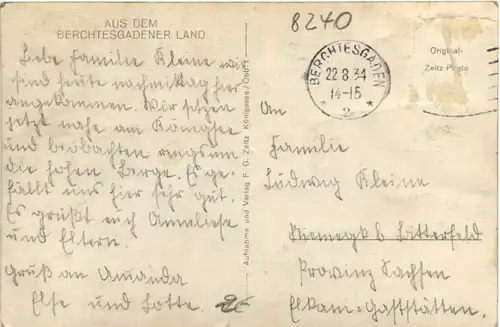 AUS DEM
BERCHTESGADENER LAND
Liebe Familie Kleine wir
sind heute nachmittag hier
angekommen. Wir sitzen
jetzt nahe am Königsee
und beobachten ringsum
die hohen Berge. Es ge-
fällt uns hier sehr gut.
Es grüßt euch Anneliese
und Eltern.
Gruß an Amanda
Else und Lotte.
Aufnahme und Verlag P. G. Zeitz Königssee/Obb.
8240
BERCHTESGADEN
22.8.34
14-15
* 2 *
Original-
Zeitz-Photo
An
Familie
Ludwig Kleine
Niemegk b Bitterfeld
Provinz Sachsen
Elkam-Gaststätten.